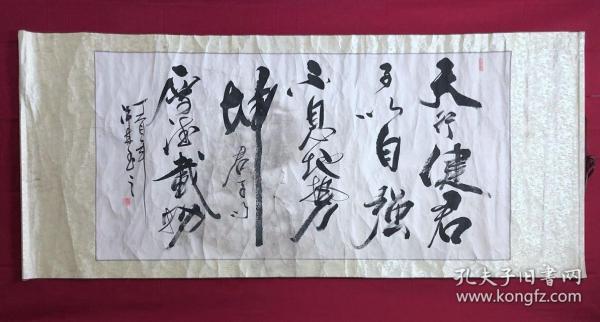 天行健君
子以自强
不息地势
坤君子以
厚德载物
孔夫子旧书网
www.kongfz.com